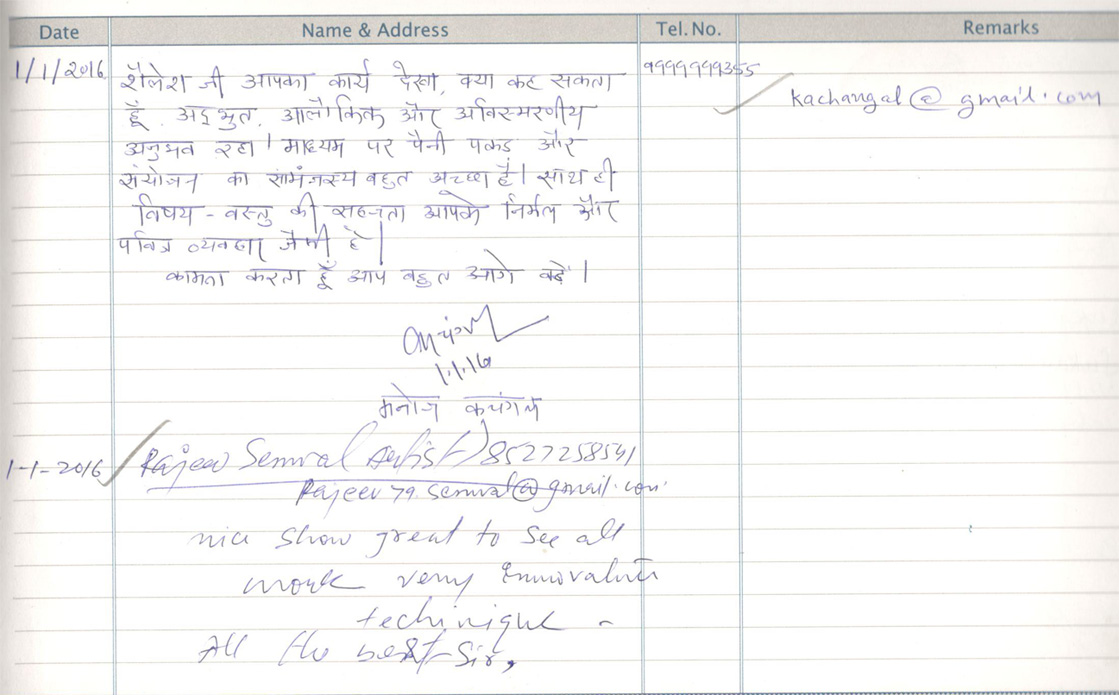 Date Name & Address Tel. No. Remarks
1/1/2016 शैलेश जी आपका कार्य देखा, क्या कह सकता 9999999355
kachangal@gmail.com
हूँ. अद्भुत. आलौकिक और अविस्मरणीय
अनुभव रहा। माध्यम पर पैनी पकड़ और
संयोजन का सामंजस्य बहुत अच्छा है। साथ ही
विषय - वस्तु की सहजता आपके निर्मल और
पवित्र व्यवहार जैसी है।
कामना करता हूँ आप बहुत आगे बढ़ें।
1.1.16
मनोज कचंगल
1-1-2016 Rajeev Semwal Artist) 8527258541
Rajeev79.semwal@gmail.com
nice show great to see all
work very Innovative
techinique -
All the best Sir,